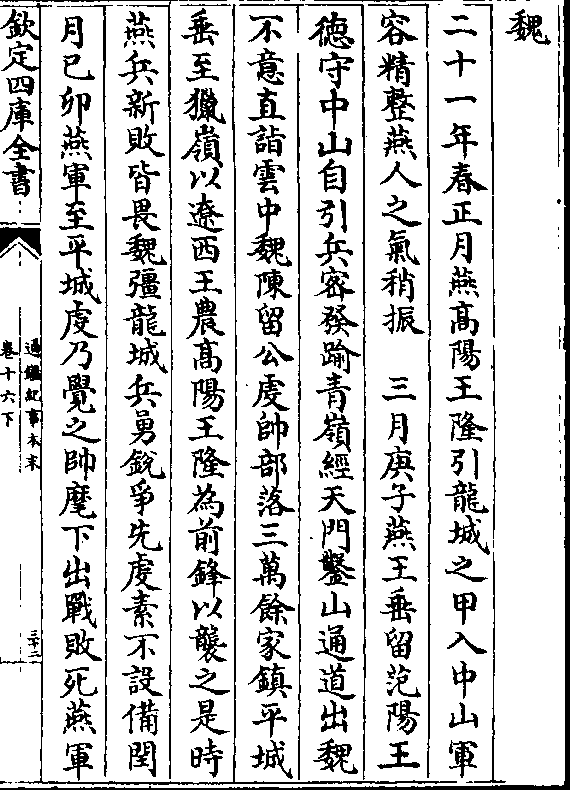 魏
二十一年春正月燕高陽王隆引龍城之甲入中山軍
容精整燕人之氣稍振　三月庚子燕王垂留范陽王
徳守中山自引兵密發踰青嶺經天門鑿山通道出魏
不意直詣雲中魏陳留公虔帥部落三萬餘家鎮平城
垂至獵嶺以遼西王農高陽王隆為前鋒以襲之是時
燕兵新敗皆畏魏彊龍城兵勇銳爭先虔素不設備閏
月已卯燕軍至平城虔乃覺之帥麾下出戰敗死燕軍
欽定四庫全書
通鑑紀事本末
卷十六下
三十二